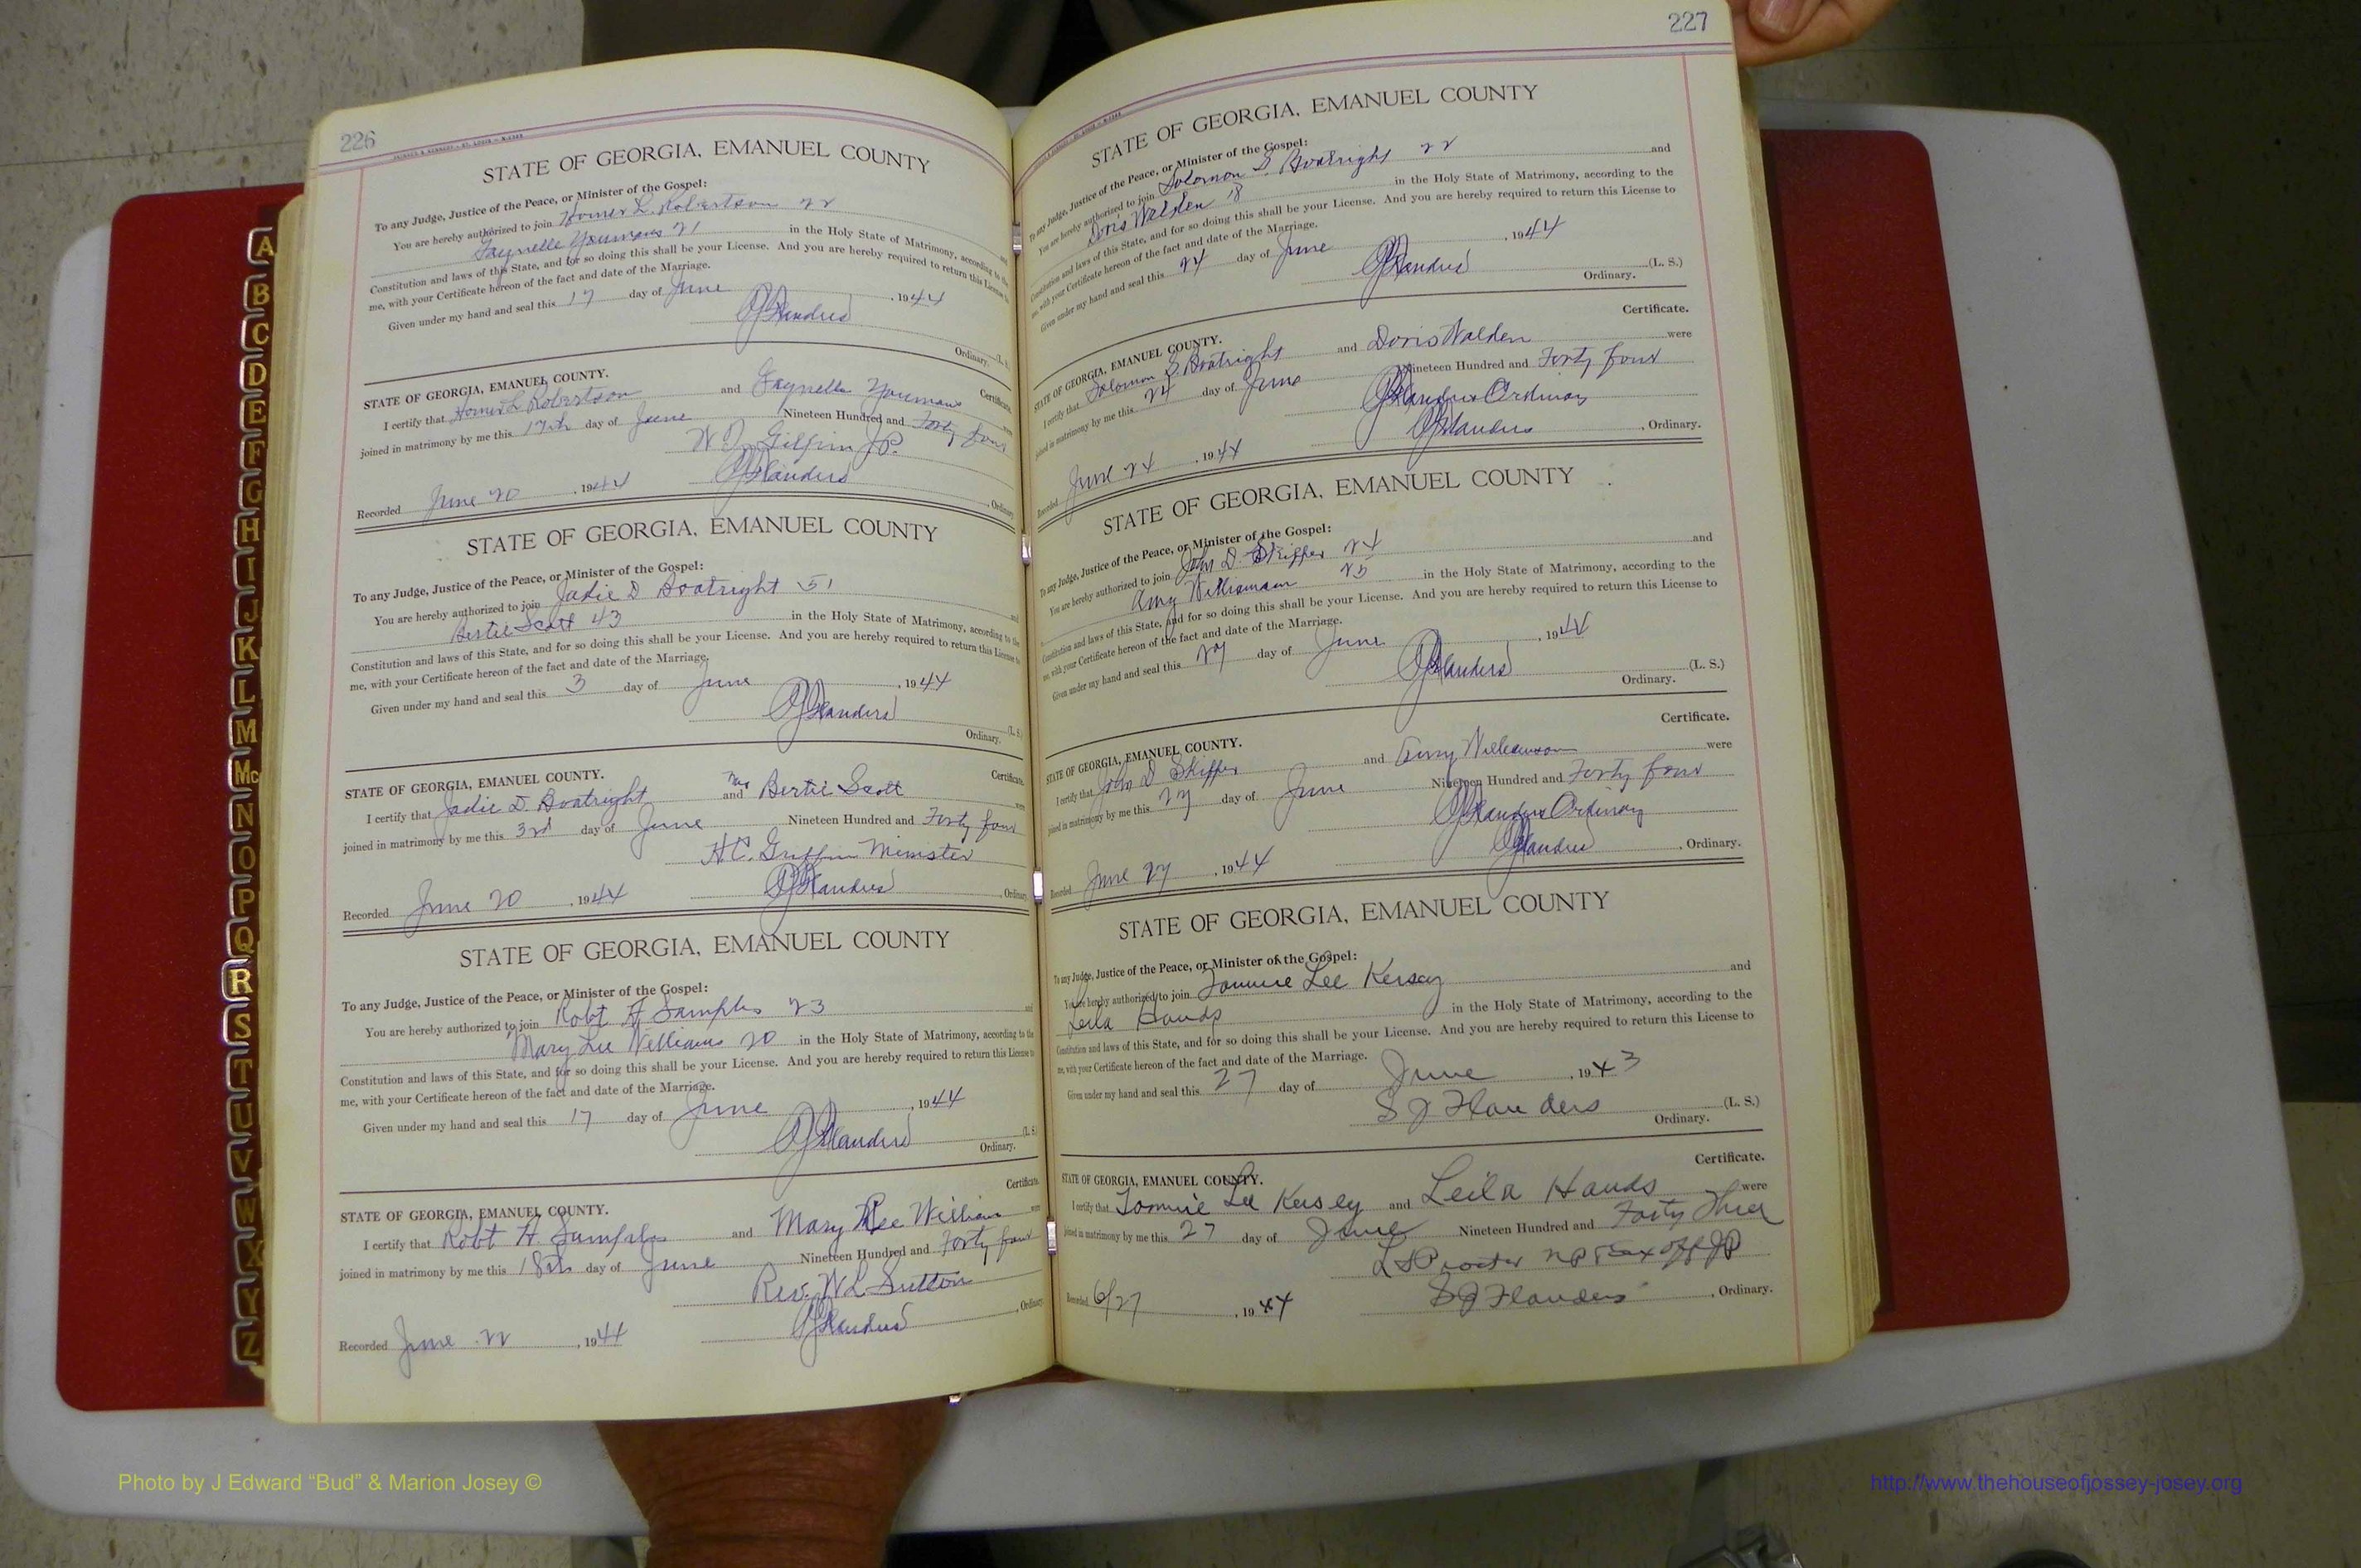 226
STATE OF GEORGIA, EMANUEL COUNTY
To any Judge, Justice of the Peace, or Minister of the Gospel:
You are hereby authorized to join Homer L. Robertson 22 and
Faynelle Youmans 21 in the Holy State of Matrimony, according to the
Constitution and laws of this State, and for so doing this shall be your License. And you are hereby required to return this License to
me, with your Certificate hereon of the fact and date of the Marriage.
Given under my hand and seal this 17 day of June, 1944
SJ Flanders (L. S.)
Ordinary.
Certificate.
STATE OF GEORGIA, EMANUEL COUNTY.
I certify that Homer L Robertson and Faynelle Youmans were
joined in matrimony by me this 17th day of June Nineteen Hundred and Forty four
Gilpin J.P.
Recorded June 20, 1944 SJ Flanders, Ordinary
STATE OF GEORGIA, EMANUEL COUNTY
To any Judge, Justice of the Peace, or Minister of the Gospel:
You are hereby authorized to join Jadie D Boatright 51 and
Bertie Scott 43 in the Holy State of Matrimony, according to the
Constitution and laws of this State, and for so doing this shall be your License. And you are hereby required to return this License to
me, with your Certificate hereon of the fact and date of the Marriage.
Given under my hand and seal this 3 day of June, 1944
SJ Flanders (L. S.)
Ordinary.
Certificate.
STATE OF GEORGIA, EMANUEL COUNTY.
I certify that Jadie D. Boatright and Mrs Bertie Scott were
joined in matrimony by me this 3rd day of June Nineteen Hundred and Forty four
H.C. Griffin Minister
Recorded June 20, 1944 SJ Flanders, Ordinary
STATE OF GEORGIA, EMANUEL COUNTY
To any Judge, Justice of the Peace, or Minister of the Gospel:
You are hereby authorized to join Robt H Samples 23 and
Mary Lee Williams 20 in the Holy State of Matrimony, according to the
Constitution and laws of this State, and for so doing this shall be your License. And you are hereby required to return this License to
me, with your Certificate hereon of the fact and date of the Marriage.
Given under my hand and seal this 17 day of June, 1944
SJ Flanders (L. S.)
Ordinary.
Certificate.
STATE OF GEORGIA, EMANUEL COUNTY.
I certify that Robt H. Samples and Mary Lee William were
joined in matrimony by me this 18th day of June Nineteen Hundred and Forty four
Rev. W L Sutton
Recorded June 22, 1944 SJ Flanders, Ordinary
227
STATE OF GEORGIA, EMANUEL COUNTY
To any Judge, Justice of the Peace, or Minister of the Gospel:
You are hereby authorized to join Solomon S Boatright 22 and
Doris Walden 18 in the Holy State of Matrimony, according to the
Constitution and laws of this State, and for so doing this shall be your License. And you are hereby required to return this License to
me, with your Certificate hereon of the fact and date of the Marriage.
Given under my hand and seal this 24 day of June, 1944
SJ Flanders (L. S.)
Ordinary.
Certificate.
STATE OF GEORGIA, EMANUEL COUNTY.
I certify that Solomon S Boatright and Doris Walden were
joined in matrimony by me this 24 day of June Nineteen Hundred and Forty four
SJ Flanders Ordinary
Recorded June 24, 1944 SJ Flanders, Ordinary.
STATE OF GEORGIA, EMANUEL COUNTY
To any Judge, Justice of the Peace, or Minister of the Gospel:
You are hereby authorized to join John D. Skipper 24 and
Amy Williamson 25 in the Holy State of Matrimony, according to the
Constitution and laws of this State, and for so doing this shall be your License. And you are hereby required to return this License to
me, with your Certificate hereon of the fact and date of the Marriage.
Given under my hand and seal this 27 day of June, 1944
SJ Flanders (L. S.)
Ordinary.
Certificate.
STATE OF GEORGIA, EMANUEL COUNTY.
I certify that John D Skipper and Amy Williamson were
joined in matrimony by me this 27 day of June Nineteen Hundred and Forty four
SJ Flanders Ordinary
Recorded June 27, 1944 SJ Flanders, Ordinary.
STATE OF GEORGIA, EMANUEL COUNTY
To any Judge, Justice of the Peace, or Minister of the Gospel:
You are hereby authorized to join Tommie Lee Kersey and
Leila Hands in the Holy State of Matrimony, according to the
Constitution and laws of this State, and for so doing this shall be your License. And you are hereby required to return this License to
me, with your Certificate hereon of the fact and date of the Marriage.
Given under my hand and seal this 27 day of June, 1943
S J Flanders (L. S.)
Ordinary.
Certificate.
STATE OF GEORGIA, EMANUEL COUNTY.
I certify that Tommie Lee Kersey and Leila Hands were
joined in matrimony by me this 27 day of June Nineteen Hundred and Forty Three
L S Proctor NP & Ex off JP
Recorded 6/27, 1944 S J Flanders, Ordinary.
A
B
C
D
E
F
G
H
I
J
K
L
M
Mc
N
O
P
Q
R
S
T
U
V
W
X
Y
Z
Photo by J Edward “Bud” & Marion Josey ©
http://www.thehouseofjossey-josey.org